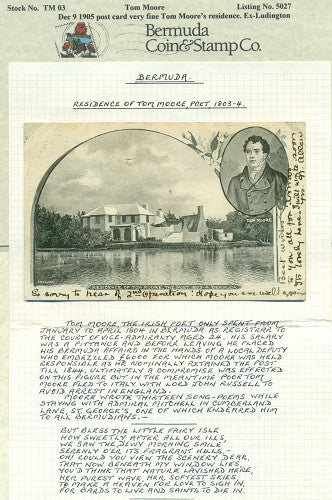 Stock No. TM 03 Tom Moore Listing No. 5027
Dec 9 1905 post card very fine Tom Moore's residence. Ex-Ludington
Bermuda
Coin&Stamp Co.
BERMUDA.
RESIDENCE OF TOM MOORE, POET 1803-4.
TOM MOORE
RESIDENCE OF TOM MOORE, THE POET, BERMUDA.
So sorry to hear of 2nd operation! Hope you are well again
TOM MOORE THE IRISH POET ONLY SPENT FROM
JANUARY TO APRIL 1804 IN BERMUDA AS REGISTRAR TO
THE COURT OF VICE-ADMIRALTY AGED 24. HIS SALARY
WAS A PITTANCE AND BEFORE LEAVING HE PLACED
HIS BERMUDA AFFAIRS IN THE HANDS OF A LOCAL DEPUTY
WHO EMBEZZLED £6000 FOR WHICH MOORE WAS HELD
RESPONSIBLE AS HE NOMINALLY RETAINED THE POST
TILL 1844. ULTIMATELY A COMPROMISE WAS EFFECTED
ON THIS FIGURE BUT IN THE MEANTIME POOR TOM
MOORE FLED TO ITALY WITH LORD JOHN RUSSELL TO
AVOID ARREST IN ENGLAND.
MOORE WROTE THIRTEEN SONG-POEMS WHILE
STAYING WITH ADMIRAL MITCHELL IN CUMBERLAND
LANE, ST. GEORGE'S ONE OF WHICH ENDEARED HIM
TO ALL BERMUDIANS.—
BUT BLESS THE LITTLE FAIRY ISLE
HOW SWEETLY AFTER ALL OUR ILLS,
WE SAW THE DEWY MORNING SMILE
SERENELY O'ER ITS FRAGRANT HILLS,—
OH! COULD YOU VIEW THE SCENERY DEAR,
THAT NOW BENEATH MY WINDOW LIES
YOU'D THINK THAT NATURE LAVISHED HERE,
HER PUREST WAVE, HER SOFTEST SKIES,
TO MAKE A HEAVEN FOR LOVE TO SIGH IN,
FOR BARDS TO LIVE AND SAINTS TO DIE IN.